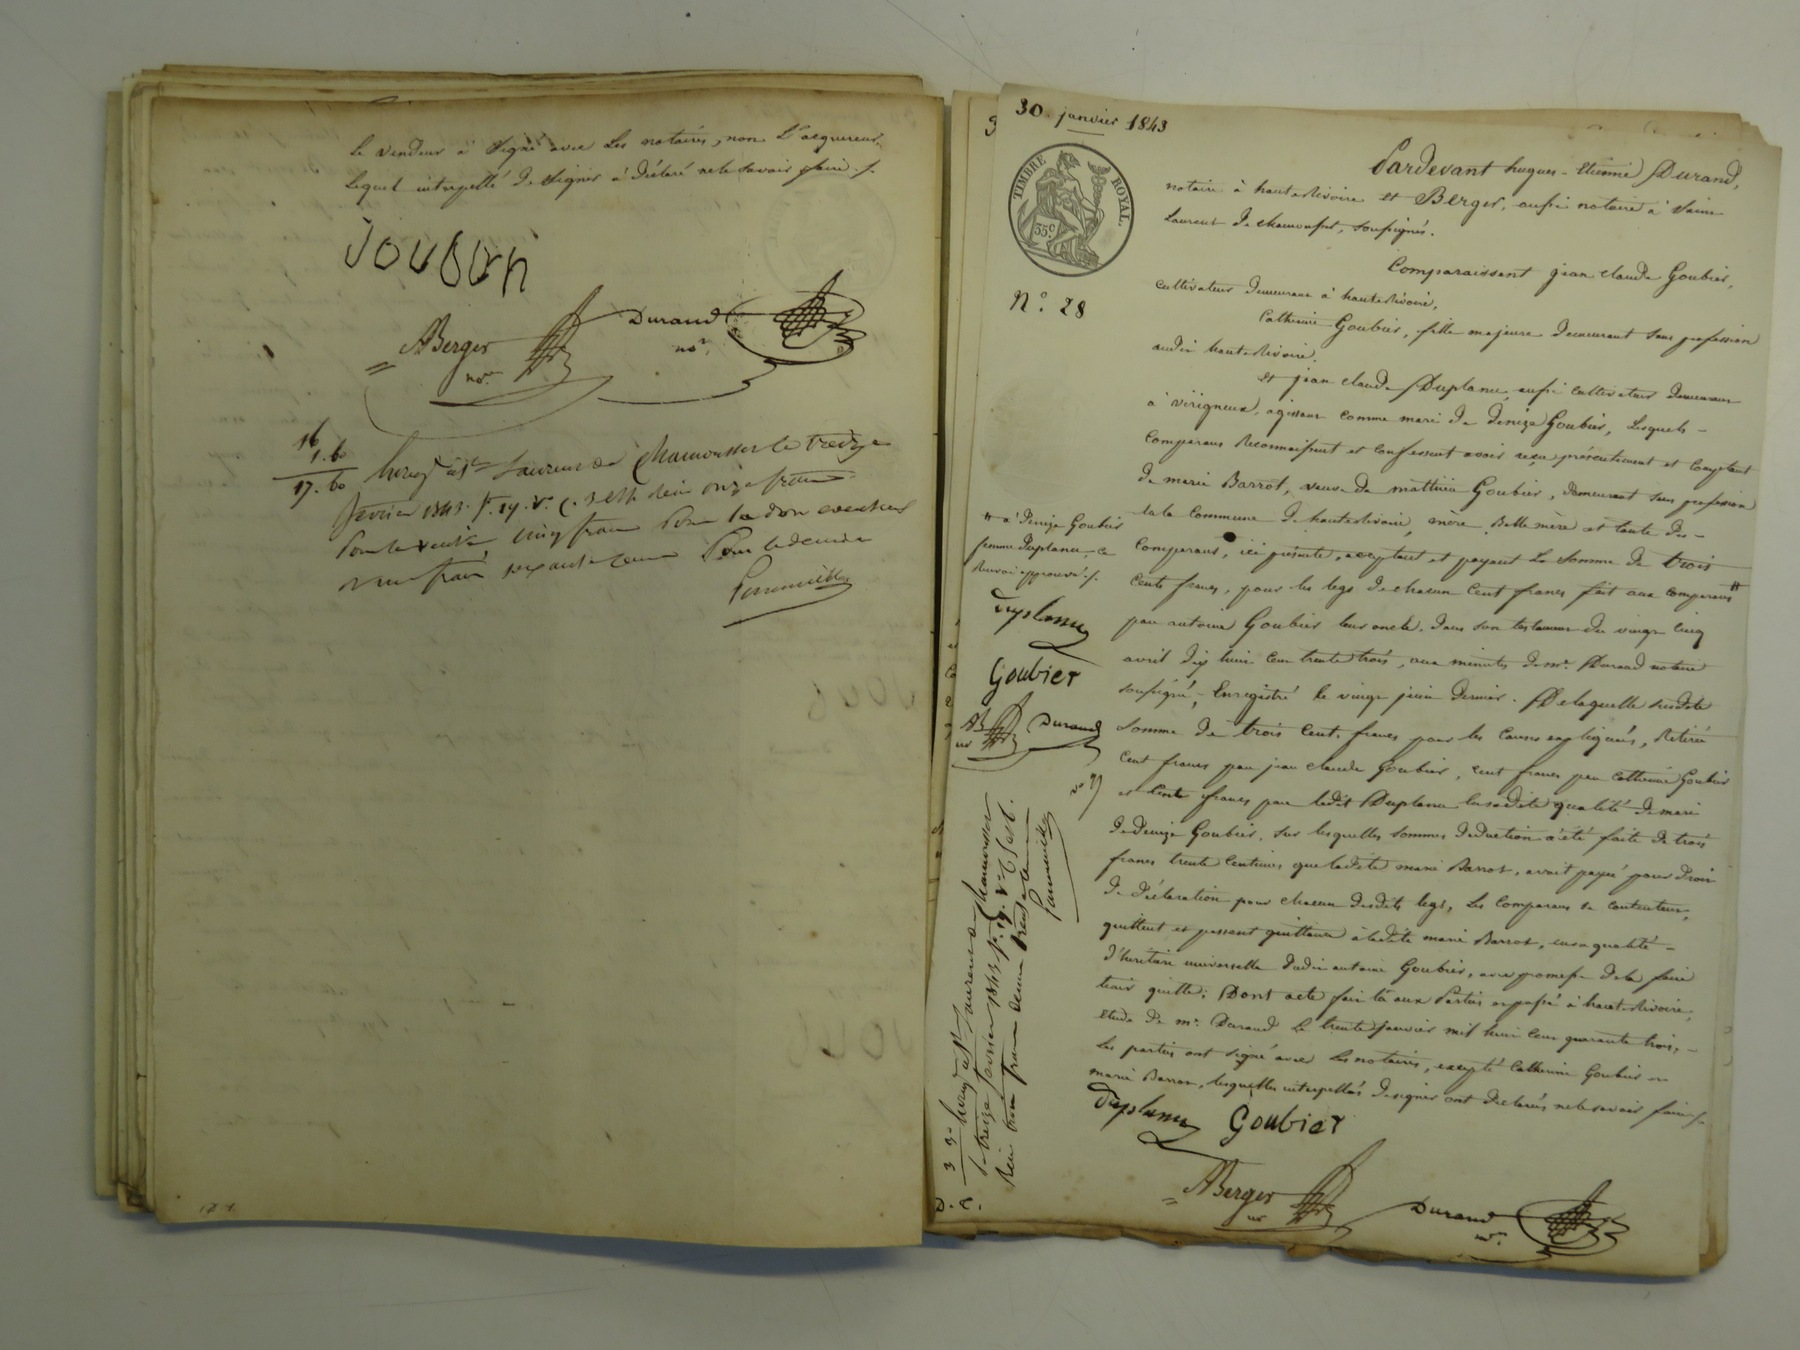 Le vendeur a signé avec Les notaires, non L'acquereur,
Lequel interpellé de signer a déclaré ne le savoir faire ./.
JOUBAN
ABerger
nore
Durand
nore
16
1.60
17.60
Enregé à St Laurent de Chamousset le treize
février 1843. fo. 19. vo. C.
pour la vente cinq francs pour le don eventuel
un franc soixante centimes pour le decime
30 janvier 1843
TIMBRE ROYAL
35c
No. 28
Pardevant hugues-Etienne Durand,
notaire à hauterivoire et Berger, aussi notaire à Saint
Laurent de chamousset, soussignés.
Comparaissent jean claude Goubier,
cultivateur demeurant à hauterivoire,
Catherine Goubier, fille majeure demeurant sans profession
audit hauterivoire.
et jean claude Duplanu, aussi cultivateur demeurant
à virigneux, agissant comme mari de Denize Goubier, Lesquels -
Comparans Reconnaissent et confessent avoir reçu présentement et comptant
de marie Barrot, veuve de mathieu Goubier, demeurant sans profession
en la Commune de hauterivoire, mère Belle mère et tante des -
Comparans, ici présente, acceptant et payant La somme de trois
cents francs, pour les legs de chacun cent francs fait aux comparans #
par antoine Goubier leur oncle, dans son testament du vingt cinq
avril dix huit cent trente trois, aux minutes de me. Durand notaire
soussigné, Enregistré le vingt juin dernier. De laquelle susdite
somme de trois cents francs pour les causes expliquées, Retirée
cent francs par jean claude Goubier, cent francs par catherine Goubier
et cent francs par ledit Duplanu en sadite qualité de mari
de Denize Goubier, sur lesquelles sommes déduction a été faite de trois
francs trente centimes que ladite marie Barrot, avait payé pour droit
de déclaration pour chacun desdits legs, Les Comparans se contentent,
quittent et passent quittance à ladite marie Barrot, en sa qualité -
d'héritière universelle dudit antoine Goubier, avec promesse de la faire
tenir quitte; Dont acte fait lû aux Parties et passé à hauterivoire,
étude de me. Durand Le trente janvier mil huit cent quarante trois, -
Les parties ont signé avec Les notaires, excepté Catherine Goubier et
marie Barrot, lesquelles interpellées de signer ont déclarés ne le savoir faire ./.
Duplanu Goubier
ABerger
nre
Durand
nre.
# à Denize Goubier
femme Duplanu, ce
Renvoi approuvé ./.
Duplanu
Goubier
AB
nre
Durand
3 30 Enregé à St Laurent de Chamousset
le treize février 1843 fo. 19. vo
Reçu trois francs decime trente centimes
D. C.